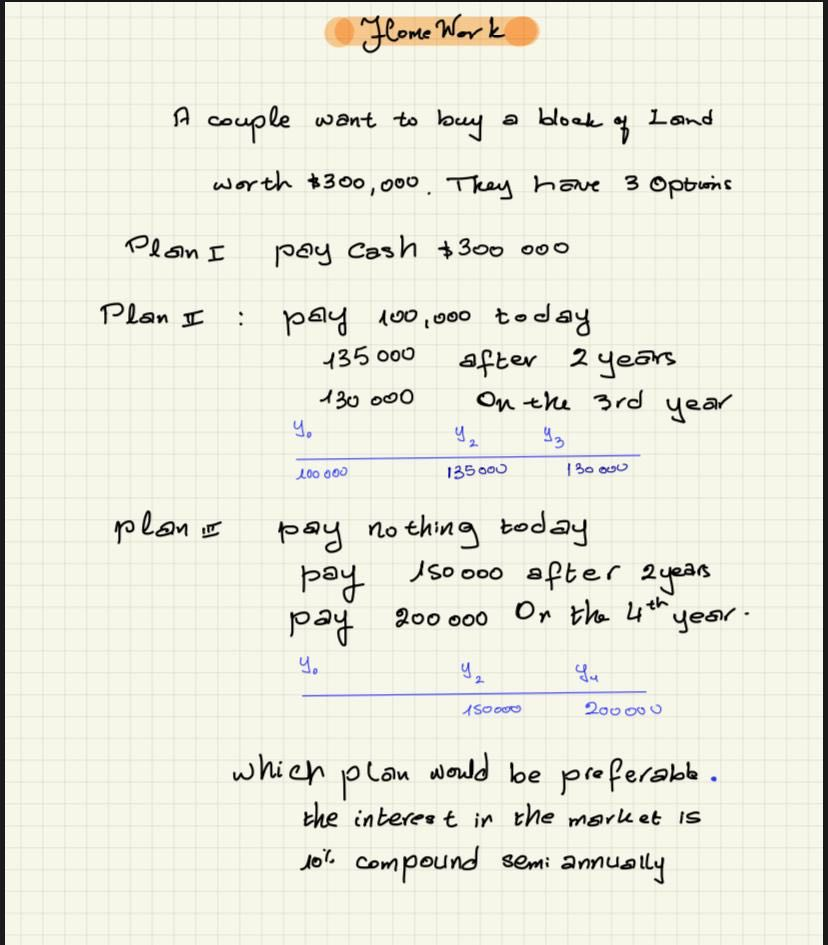 Home Work
A couple want to buy a block of Land
worth $300,000. They have 3 Options
Plan I pay cash $300 000
Plan II : pay 100,000 today
135 000 after 2 years
130 000 On the 3rd year
y₀ y₂ y₃
100 000 135 000 130 000
plan III pay nothing today
pay 150 000 after 2 years
pay 200 000 On the 4th year.
y₀ y₂ y₄
150000 200000
which plan would be preferable.
the interest in the market is
10% compound semi annually